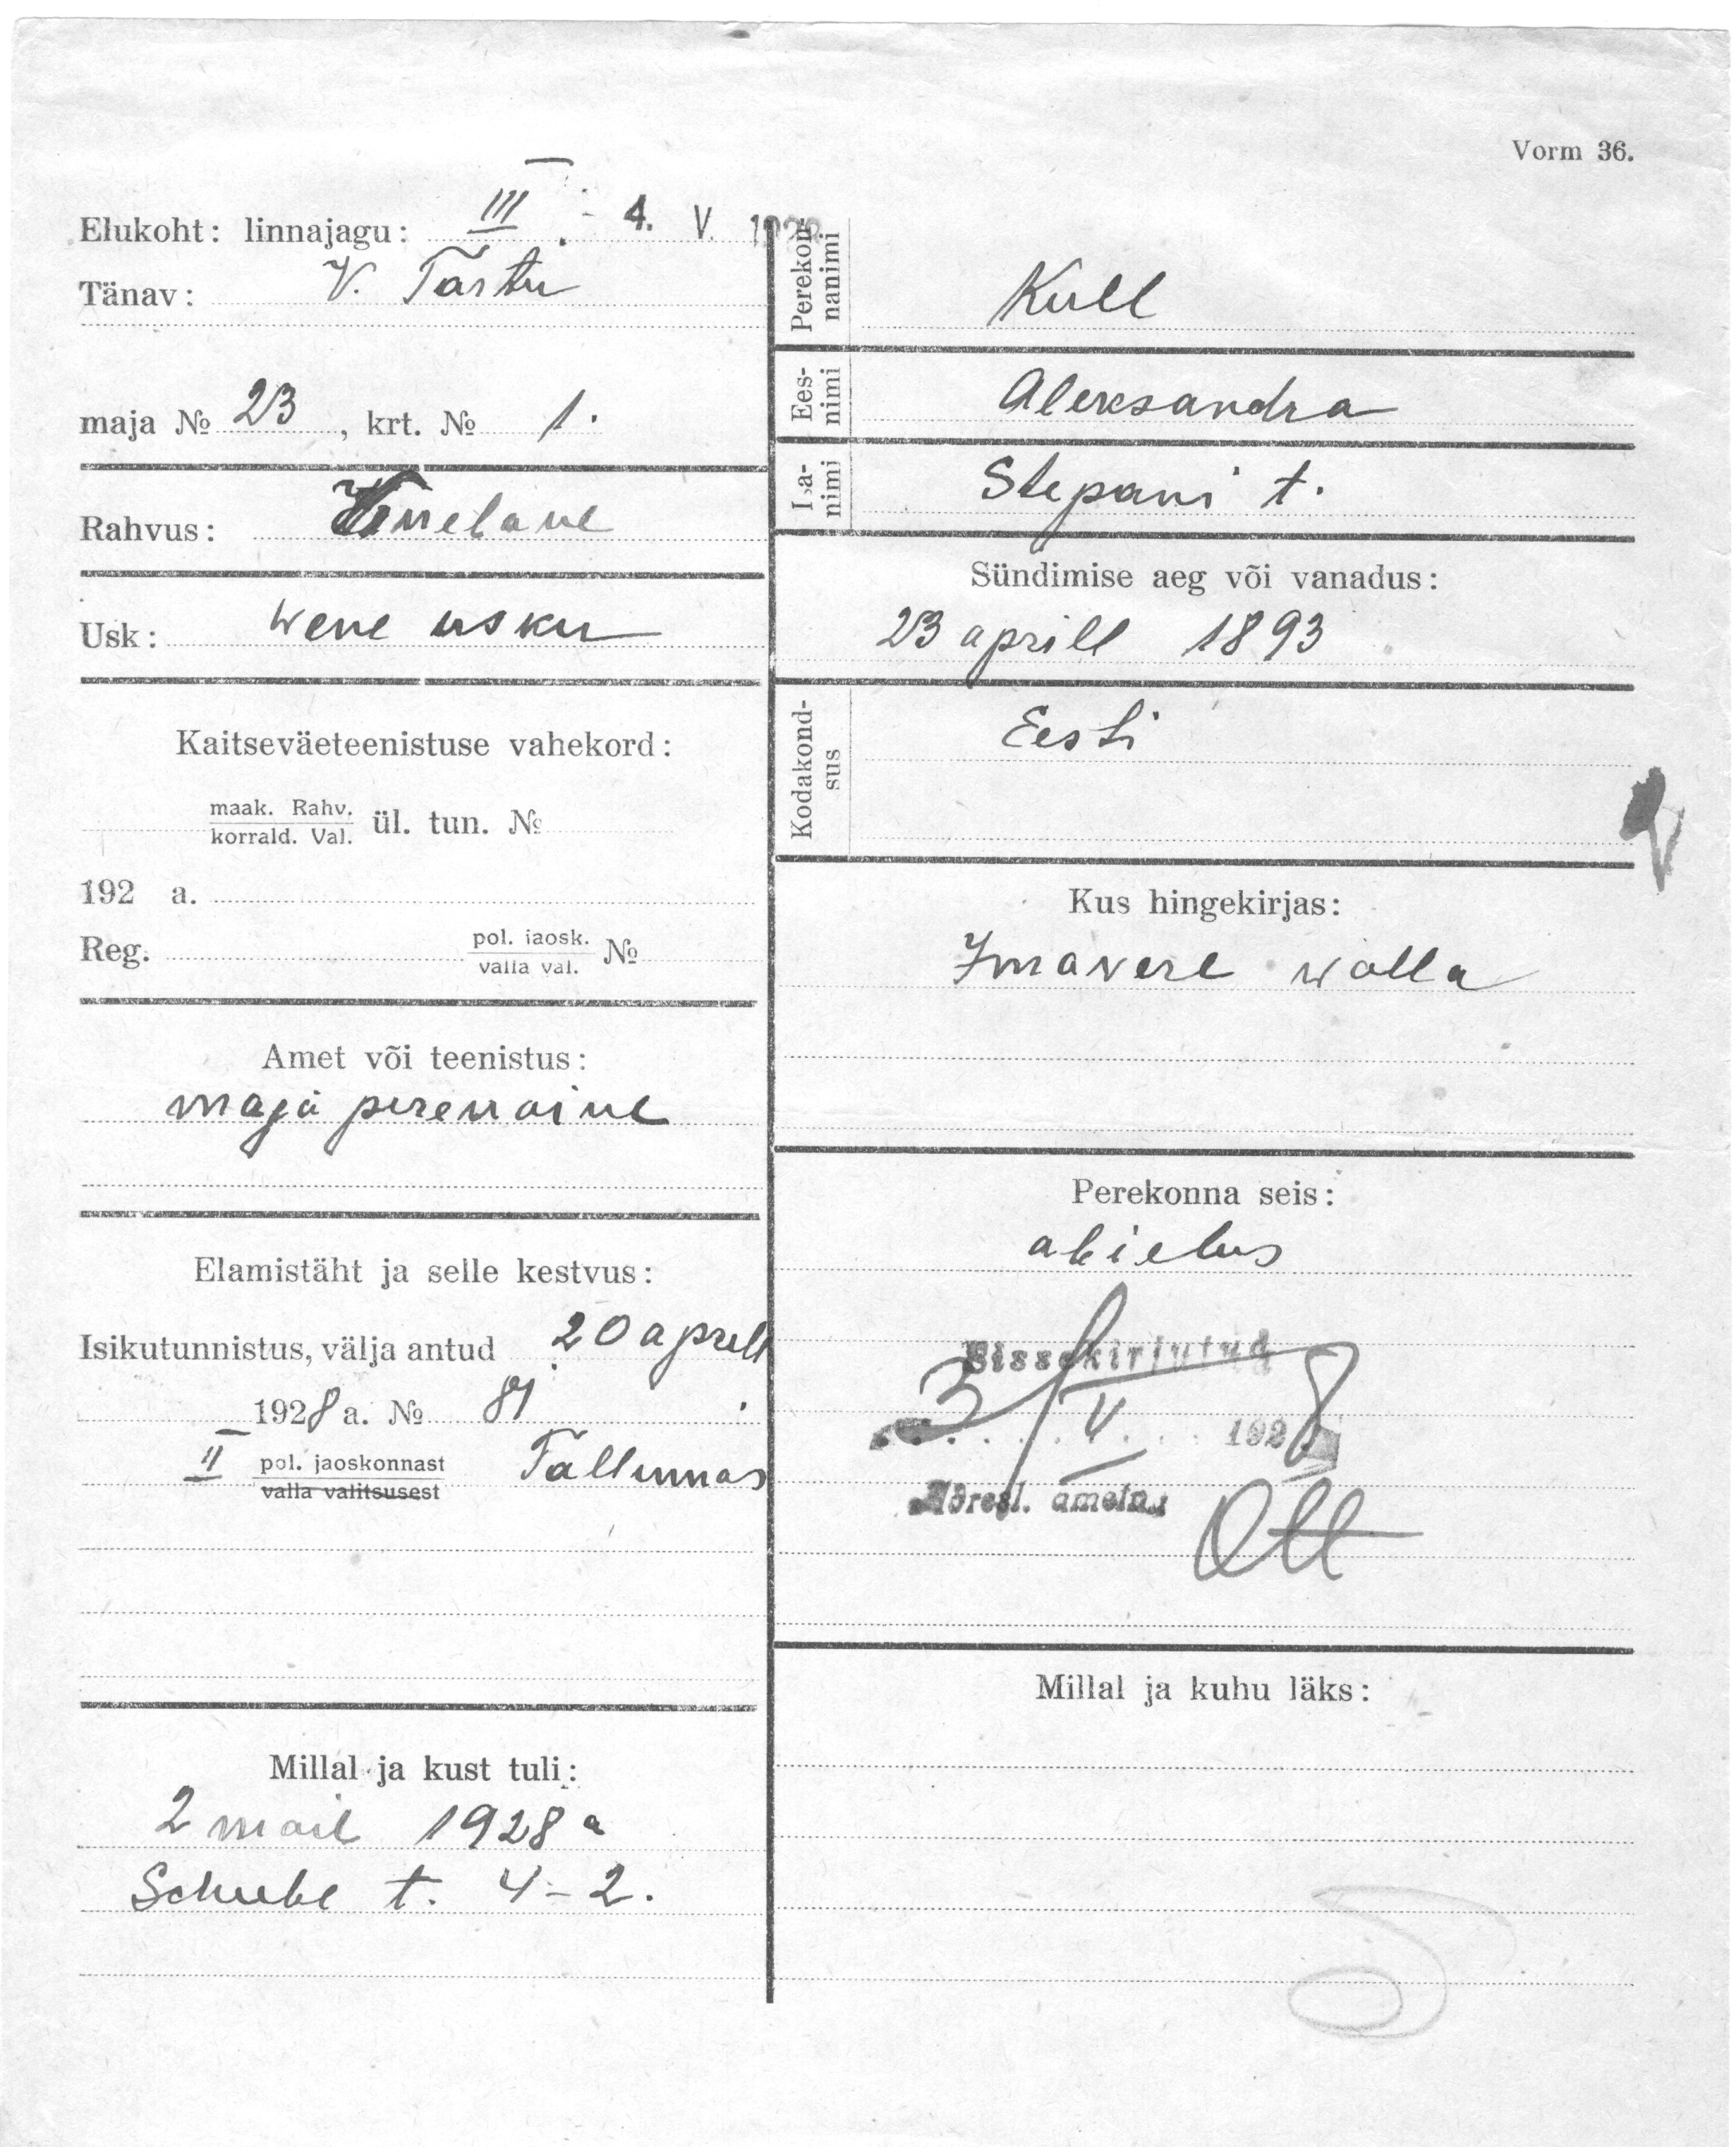 Vorm 36.
Elukoht: linnajagu: III
- 4. V. 1928
Tänav: V. Tartu
maja № 23, krt. № 1.
Rahvus: Venelane
Usk: wene usku
Kaitseväeteenistuse vahekord:
maak. Rahv.
korrald. Val. ül. tun. №
192 a.
Reg. pol. jaosk.
valla val. №
Amet või teenistus:
maja perenaine
Elamistäht ja selle kestvus:
Isikutunnistus, välja antud 20 aprill
1928 a. № 81
II pol. jaoskonnast Tallinnas
valla valitsusest
Millal ja kust tuli:
2 mail 1928 a
Schube t. 4-2.
Perekonnanimi
Kull
Eesnimi
Aleksandra
Isanimi
Stepani t.
Sündimise aeg või vanadus:
23 aprill 1893
Kodakondsus
Eesti
Kus hingekirjas:
Imavere walla
Perekonna seis:
abielus
Sissekirjutud
3/V 1928
Adresl. ametn.
Ott
Millal ja kuhu läks: